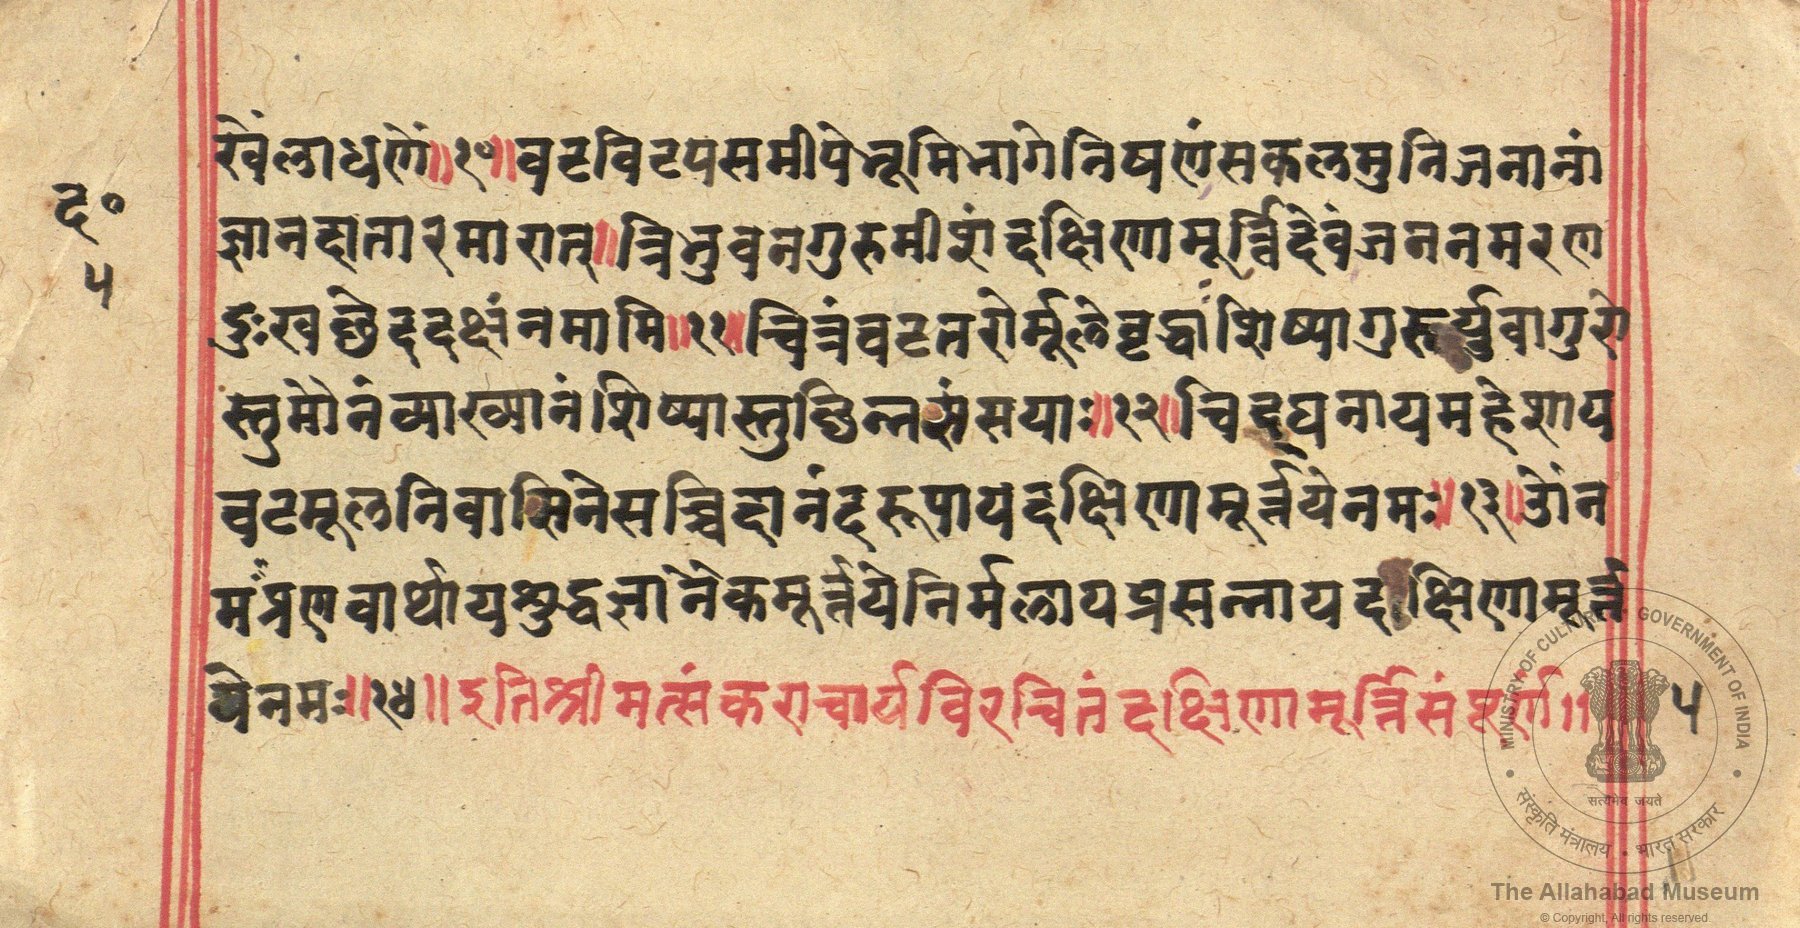 रवेंलाधणें॥१०॥वटविटपसमीपेभूमिभागेनिषणंसकलमुनिजनानां
द॰
ज्ञानदातारमारात्॥त्रिभुवनगुरुमीशंदक्षिणामूर्त्तिदेवंजननमरण
५
दुःखछैददक्षंनमामि॥११॥चित्रंवटतरोर्मूलेवृद्धाशिष्यागुरुर्युवागुरो
स्तुमौनंव्याख्यानंशिष्यास्तुछिन्नसंसयाः॥१२॥चिद्घनायमहेशाय
वटमूलनिवासिनेसच्चिदानंदरूपायदक्षिणामूर्त्तयेनमः॥१३॥ओंन
मःप्रणवार्थायशुद्धज्ञानैकमूर्त्तयेनिर्मलायप्रसन्नायदक्षिणामूर्त्त
येनमः॥१४॥इतिश्रीमत्संकराचार्यविरचितंदक्षिणामूर्त्तिसंपूर्णं॥
५
MINISTRY OF CULTURE GOVERNMENT OF INDIA
सत्यमेव जयते
संस्कृति मंत्रालय • भारत सरकार
The Allahabad Museum
© Copyright, All rights reserved.